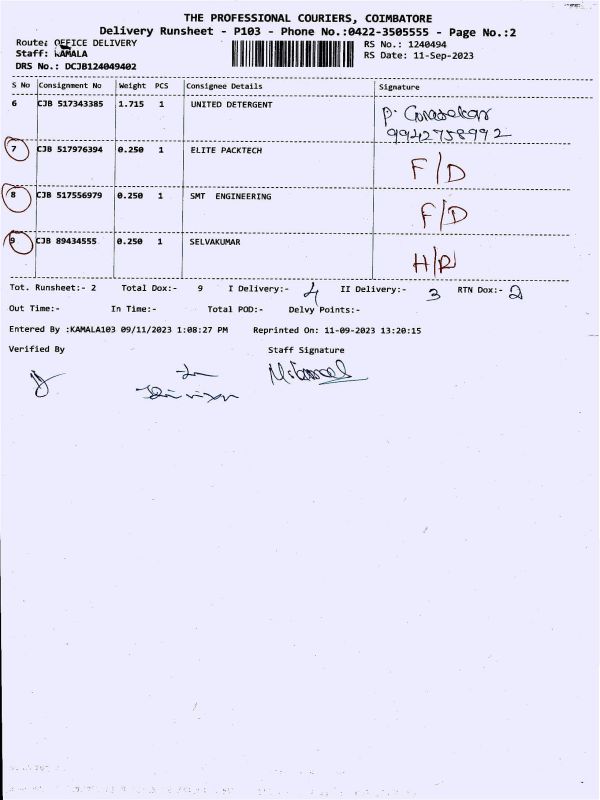 THE PROFESSIONAL COURIERS, COIMBATORE
Delivery Runsheet - P103 - Phone No.:0422-3505555 - Page No.:2
Route: OFFICE DELIVERY RS No.: 1240494
Staff: KAMALA RS Date: 11-Sep-2023
DRS No.: DCJB124049402
S No Consignment No Weight PCS Consignee Details Signature
6 CJB 517343385 1.715 1 UNITED DETERGENT P.
9942758992
7 CJB 517976394 0.250 1 ELITE PACKTECH F/D
8 CJB 517556979 0.250 1 SMT ENGINEERING F/D
9 CJB 89434555 0.250 1 SELVAKUMAR H/R
Tot. Runsheet:- 2 Total Dox:- 9 I Delivery:- 4 II Delivery:- 3 RTN Dox:- 2
Out Time:- In Time:- Total POD:- Delvy Points:-
Entered By :KAMALA103 09/11/2023 1:08:27 PM Reprinted On: 11-09-2023 13:20:15
Verified By Staff Signature